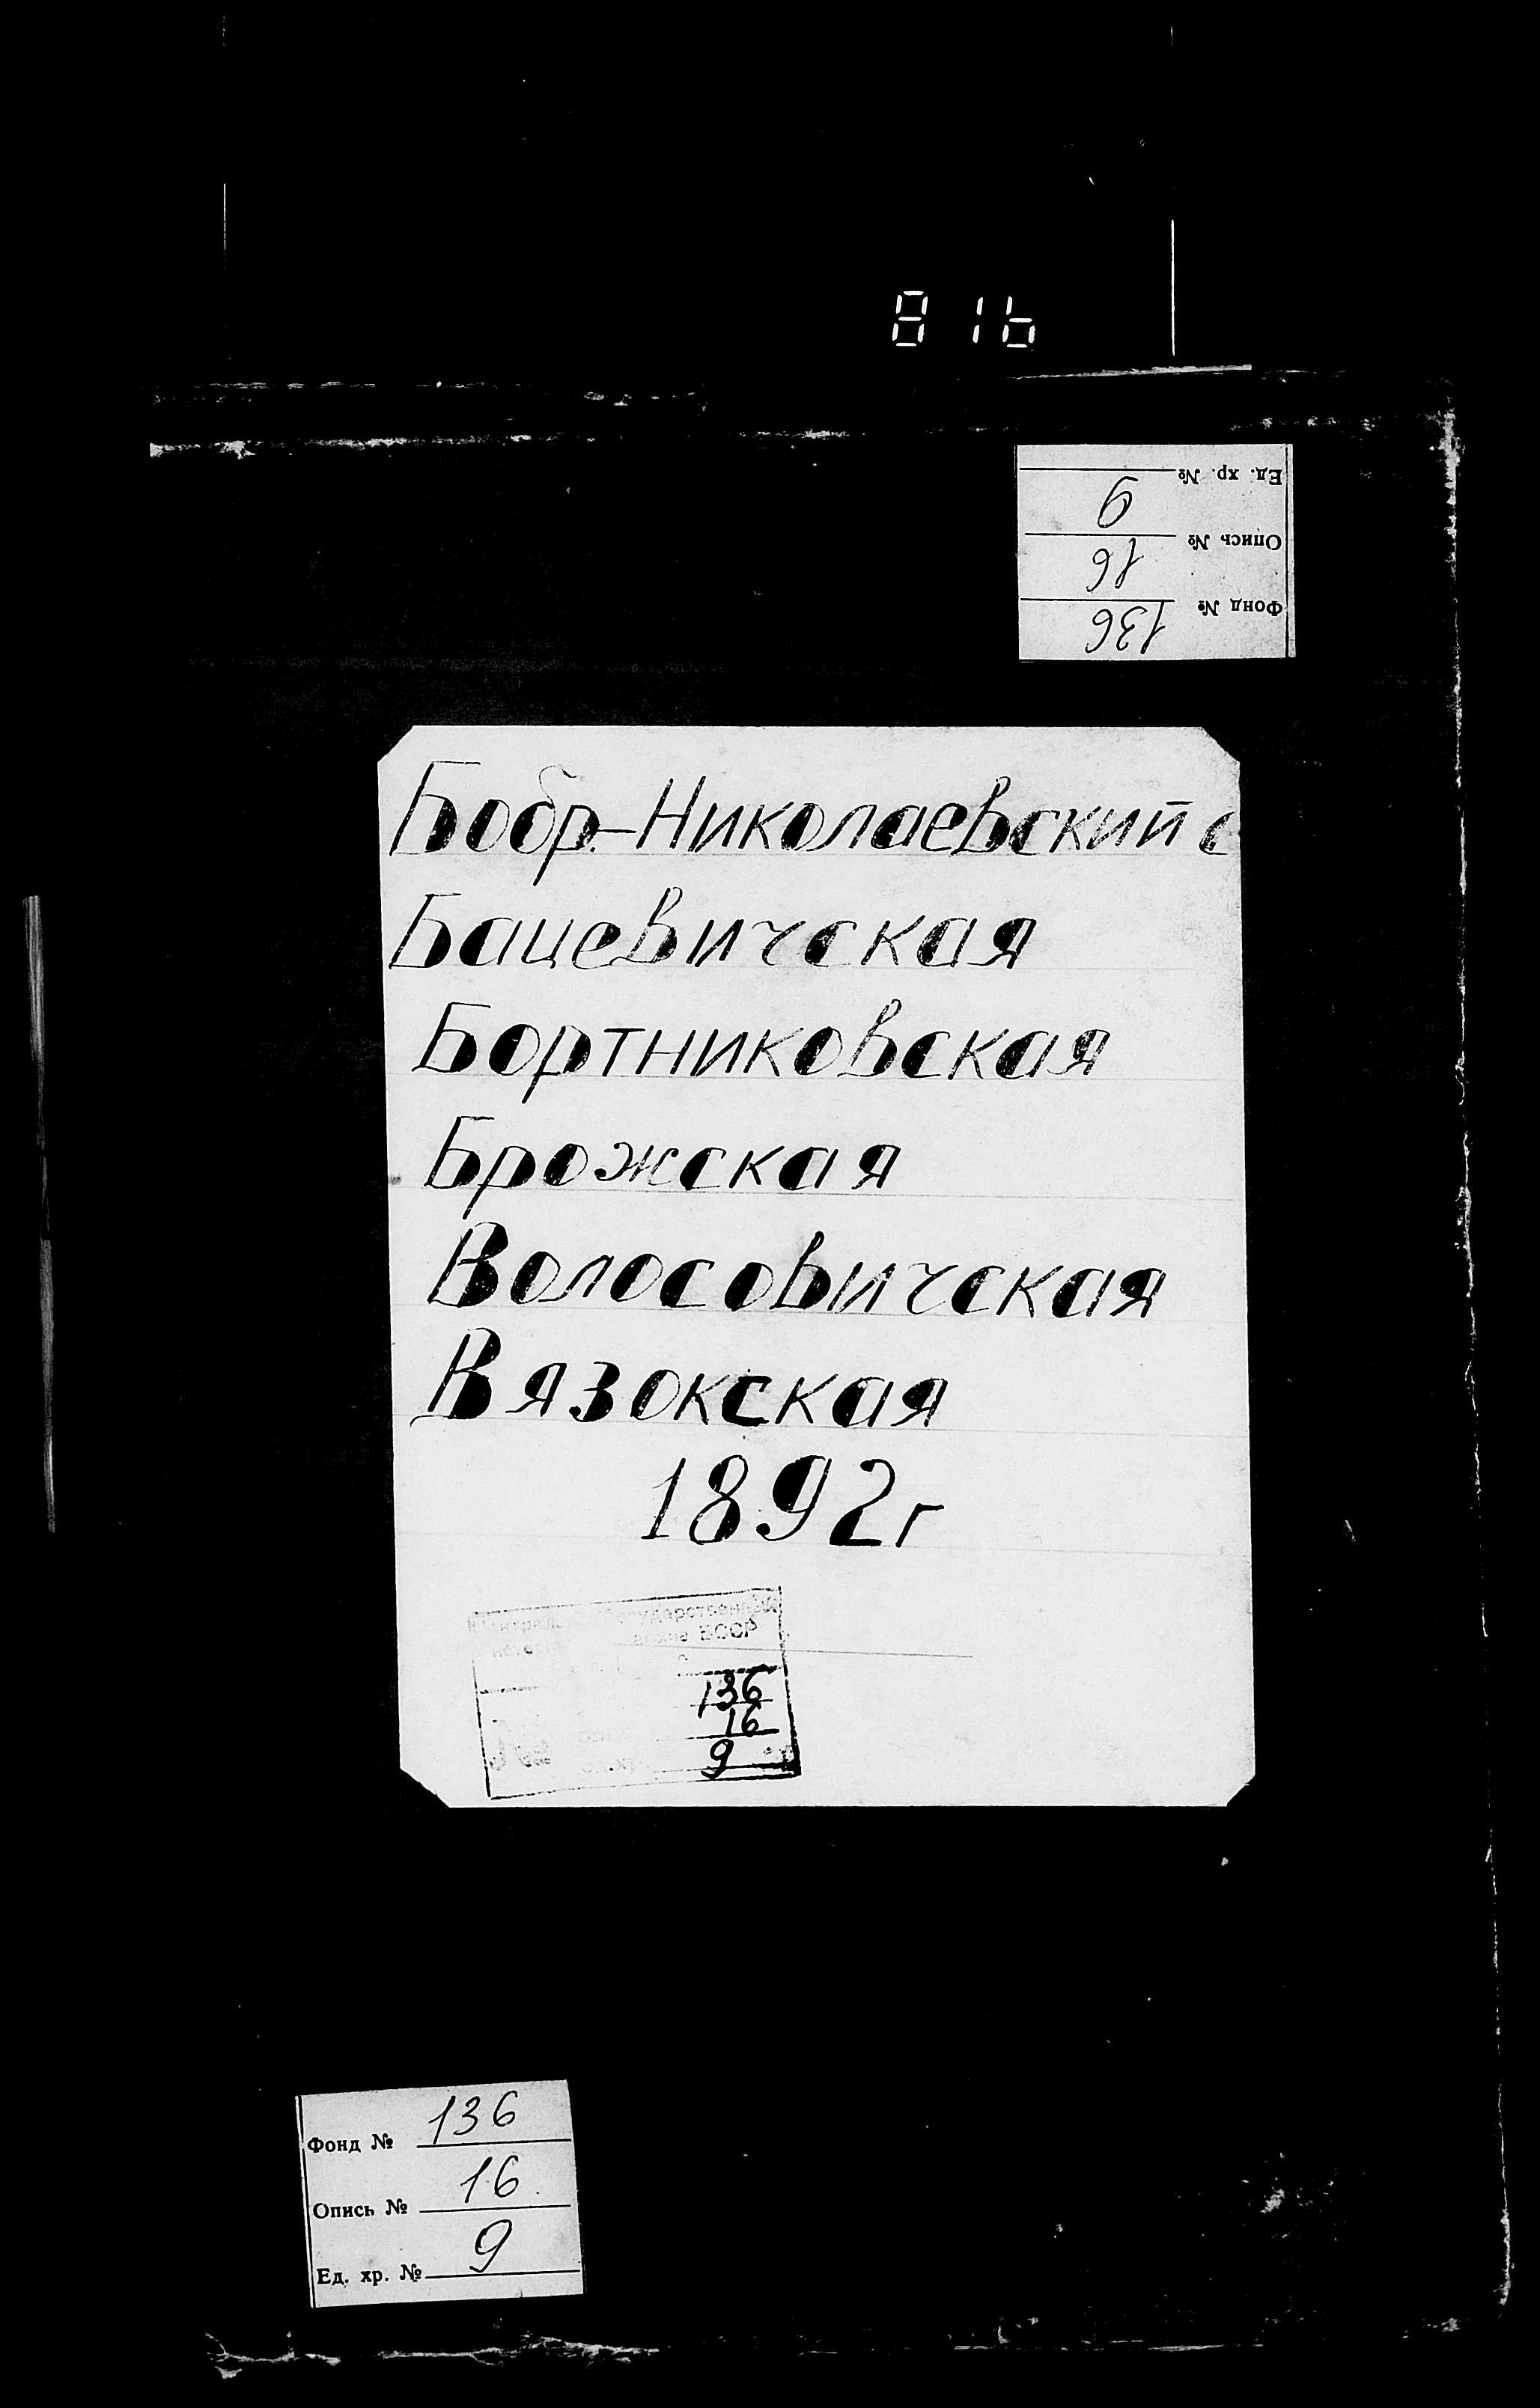 816
Ед. хр. № 9
Опись № 16
Фонд № 136
Бобр.-Николаевский с
Бацевичская
Бортниковская
Брожская
Волосовичская
Вязокская
1892г
БССР
136
16
9
Фонд № 136
Опись № 16
Ед. хр. № 9